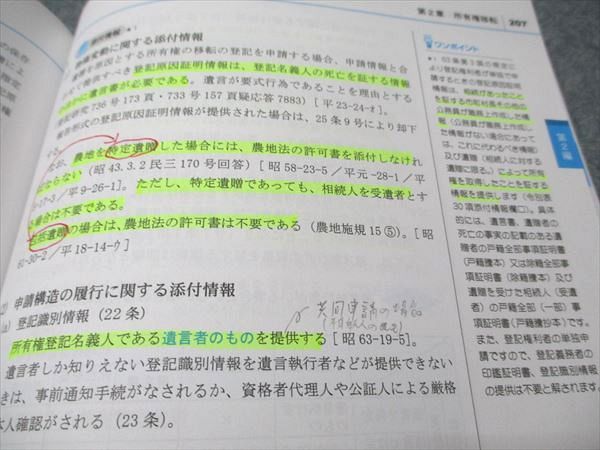 第2章 所有権移転 207
物権変動に関する添付情報
を原因とする所有権の移転の登記を申請する場合、申請情報と合
提供すべき登記原因証明情報は、登記名義人の死亡を証する情報
かに遺言書が必要である。遺言が要式行為であることを理由とする
研究736号173頁・733号157頁質疑応答7883）［平23-24-オ］。
報告形式の登記原因証明情報が提供された場合は、25条9号により却下
する。
なお、農地を特定遺贈した場合には、農地法の許可書を添付しなけれ
ばならない（昭43.3.2民三170号回答）［昭58-23-5／平元-28-1／平
-17-3／平9-26-1］。ただし、特定遺贈であっても、相続人を受遺者とす
る場合は不要である。
包括遺贈の場合は、農地法の許可書は不要である（農地施規15⑤）。［昭
61-30-2／平18-14-ウ］
申請構造の履行に関する添付情報
(a) 登記識別情報（22条）
共同申請の場合
所有権登記名義人である遺言者のものを提供する［昭63-19-5］。
遺言者しか知りえない登記識別情報を遺言執行者などが提供できない
きは、事前通知手続がなされるか、資格者代理人や公証人による厳格
本人確認がされる（23条）。
ワンポイント
＊1 63条第3項の規定に
より登記権利者が単独で申
請するときの登記原因証明
情報は、相続があったこと
を証する市町村長その他の
公務員が職務上作成した情
報（公務員が職務上作成し
た情報がない場合にあって
は、これに代わるべき情報）
及び遺贈（相続人に対する
遺贈に限る。）によって所有
権を取得したことを証する
情報を提供します（令別表
30項添付情報欄ロ）。具体
的には、遺言書、遺贈者の
死亡の事実の記載のある遺
贈者の戸籍全部事項証明書
（戸籍謄本）又は除籍全部事
項証明書（除籍謄本）及び
遺贈を受けた相続人（受遺
者）の戸籍全部（一部）事
項証明書（戸籍謄抄本）です。
また、登記権利者の単独申
請ですので、登記義務者の
印鑑証明書、登記識別情報
の提供は不要と解されます。
第2編